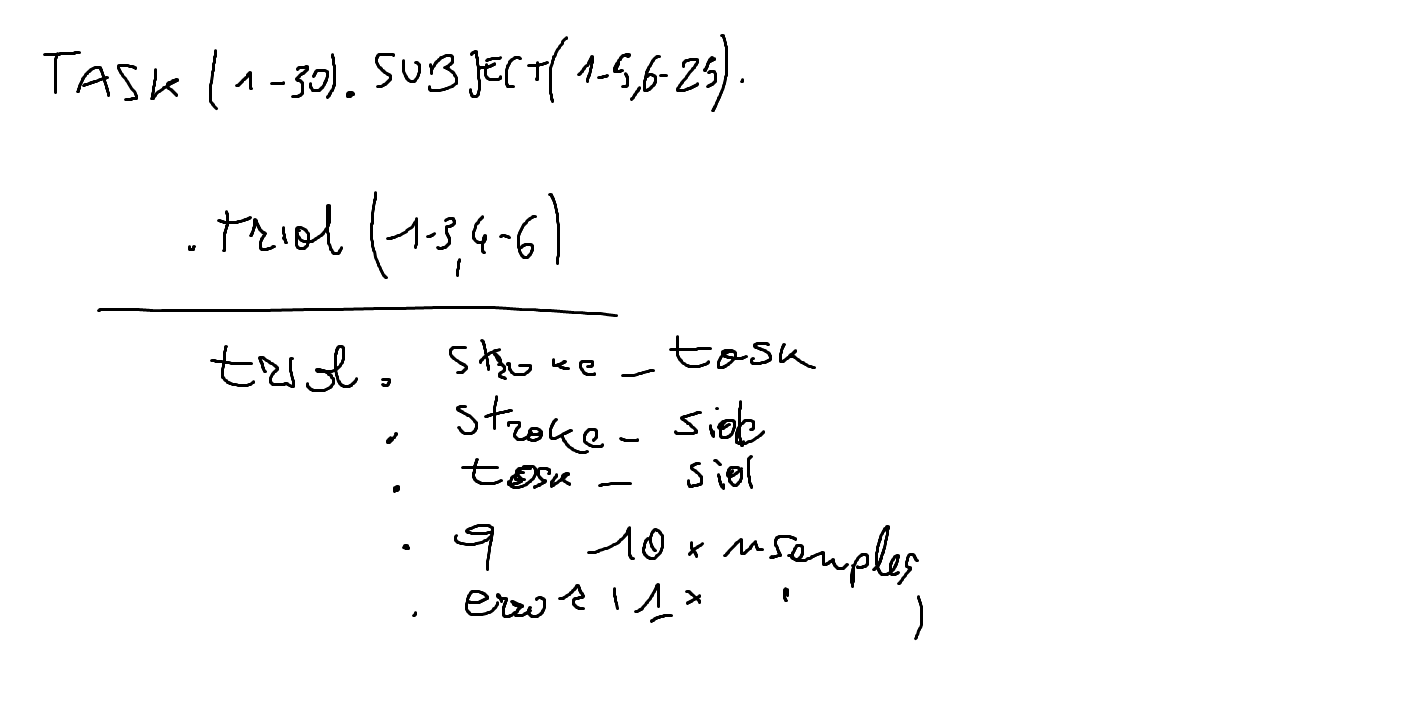 TASK (1-30). SUBJECT(1-5,6-25).
. trial (1-3,4-6)
trial . stroke_task
. stroke_side
. task_side
. q 10 x nsamples
. error 1 x